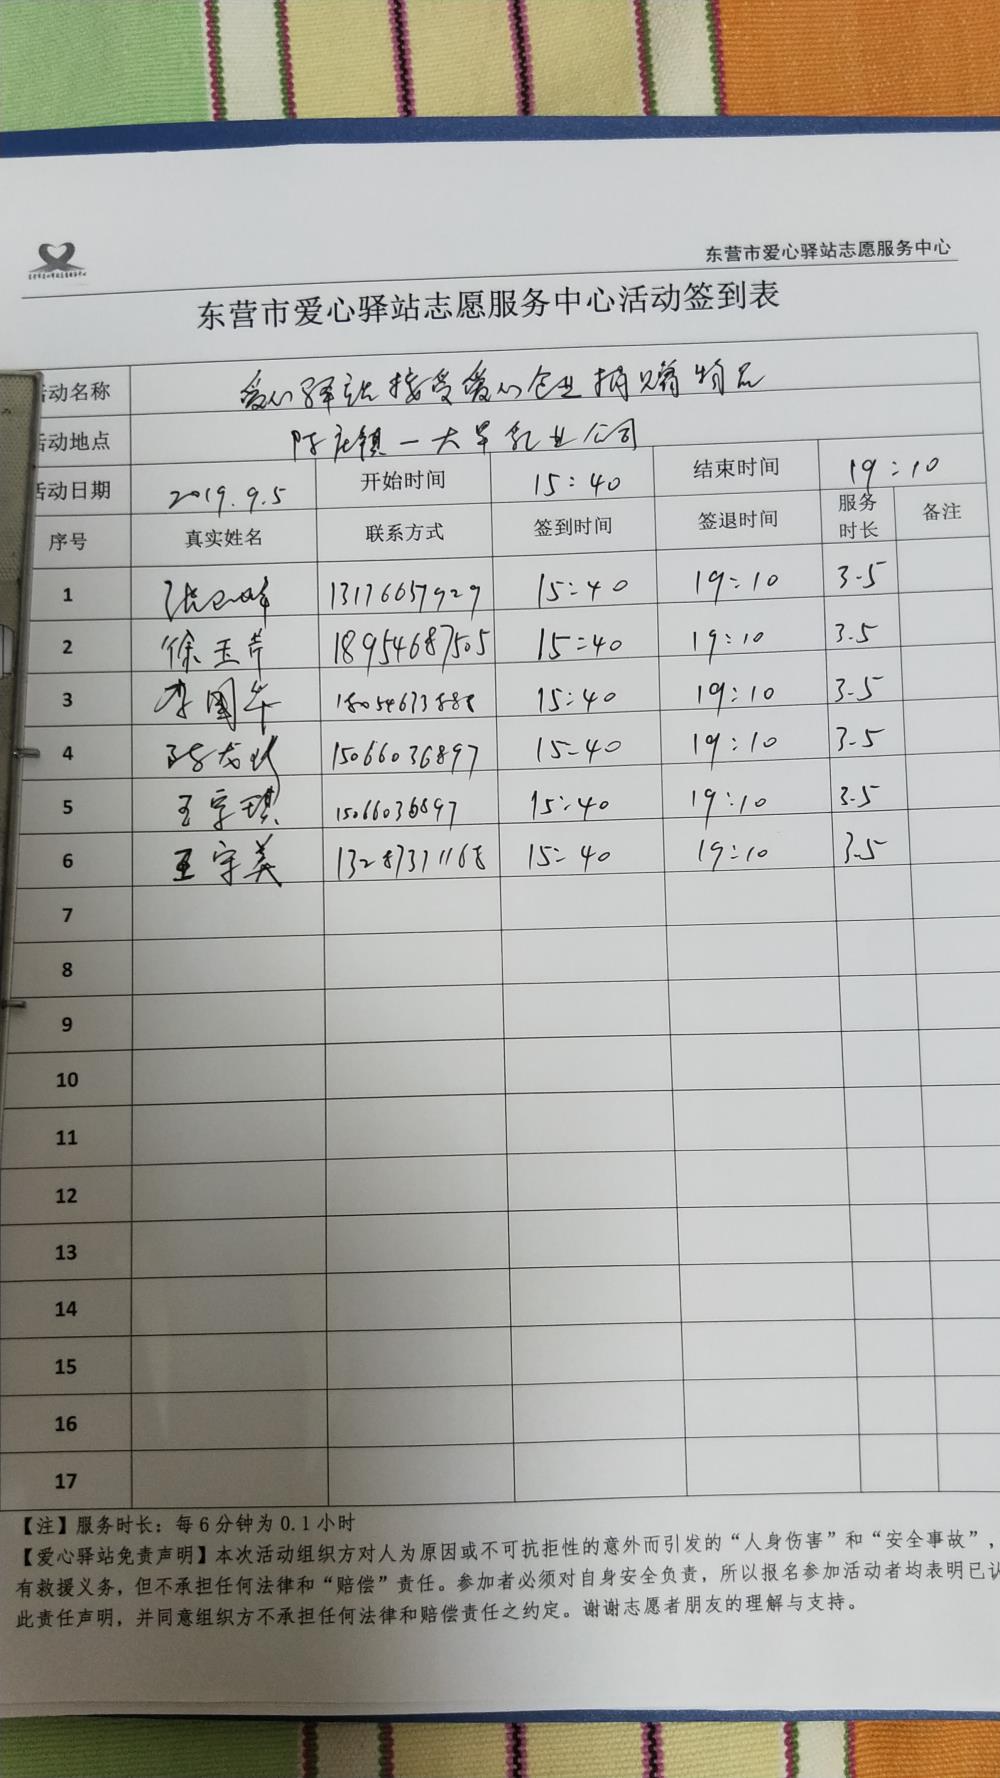 东营市爱心驿站志愿服务中心
东营市爱心驿站志愿服务中心活动签到表
活动名称 爱心驿站接受爱心企业捐赠物品
活动地点 陈庄镇一大早乳业公司
活动日期 2019.9.5 开始时间 15:40 结束时间 19:10
序号 真实姓名 联系方式 签到时间 签退时间 服务时长 备注
1 13176657929 15:40 19:10 3.5
2 徐玉芹 18954687505 15:40 19:10 3.5
3 李国华 18054673888 15:40 19:10 3.5
4 15066036897 15:40 19:10 3.5
5 王字琪 15066036897 15:40 19:10 3.5
6 王守美 13287371168 15:40 19:10 3.5
7
8
9
10
11
12
13
14
15
16
17
【注】服务时长：每6分钟为0.1小时
【爱心驿站免责声明】本次活动组织方对人为原因或不可抗拒性的意外而引发的“人身伤害”和“安全事故”，
有救援义务，但不承担任何法律和“赔偿”责任。参加者必须对自身安全负责，所以报名参加活动者均表明已认
此责任声明，并同意组织方不承担任何法律和赔偿责任之约定。谢谢志愿者朋友的理解与支持。